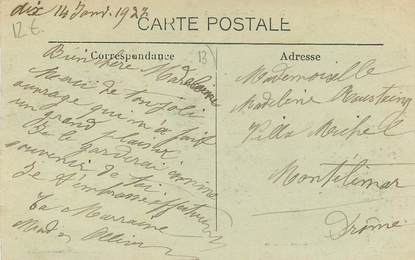 dix 14 Janv. 1922
12 €
CARTE POSTALE
Correspondance
13
Adresse
Bien chère Madeleine
Merci de ton joli
ouvrage qui m'a fait
un grand plaisir
Je le garderai comme
souvenir de toi.
Je t'embrasse
Ta Marraine
Mademoiselle
Madeleine
Villa Michel
Montélimar
Drôme